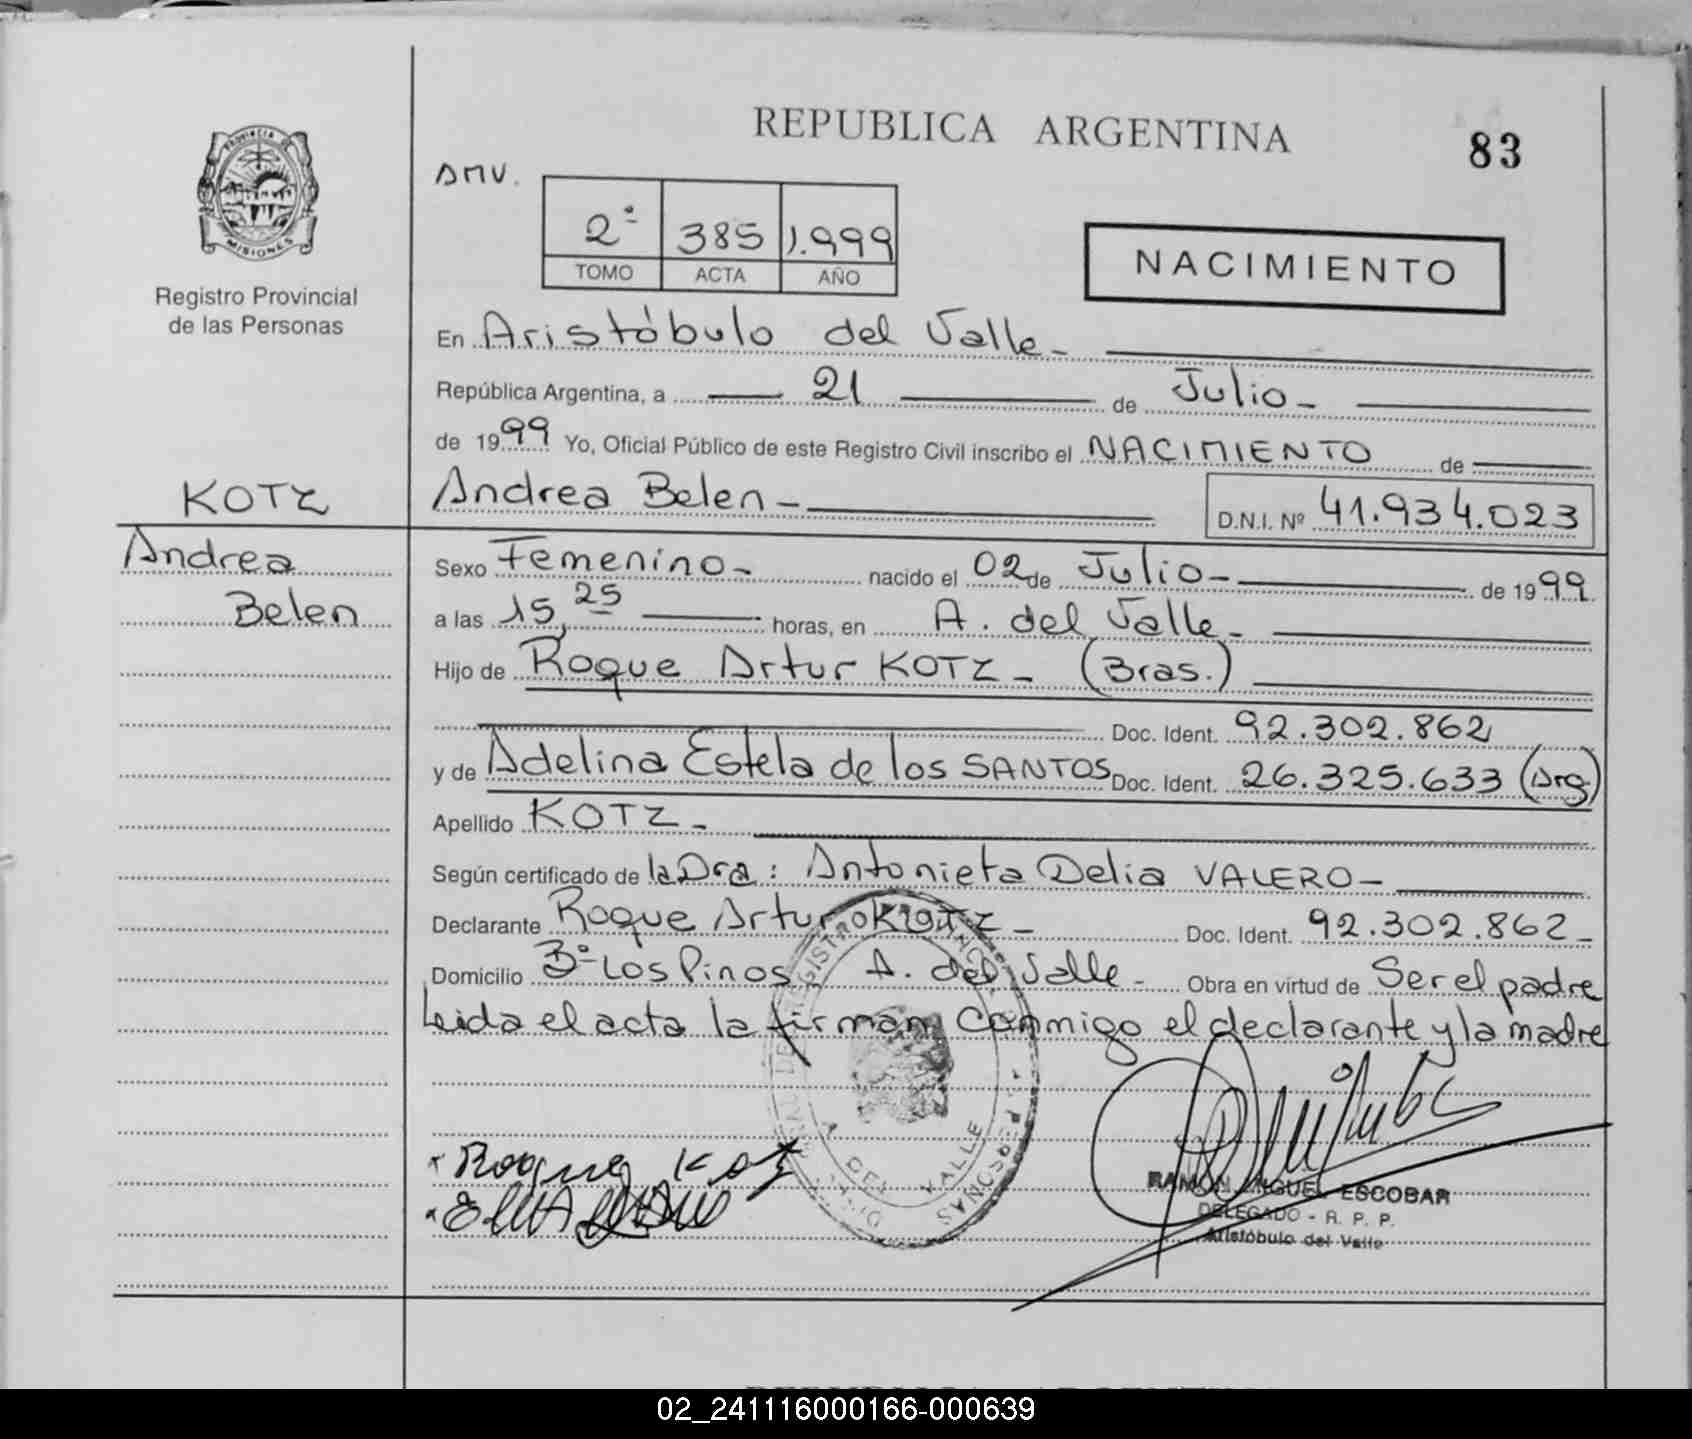 REPUBLICA ARGENTINA
83
PROVINCIA DE
MISIONES
Registro Provincial
de las Personas
AMV.
2° 385 1.999
TOMO ACTA AÑO
NACIMIENTO
En Aristóbulo del Valle-
República Argentina, a 21 de Julio-
de 1999 Yo, Oficial Público de este Registro Civil inscribo el NACIMIENTO de
KOTZ
Andrea Belen-
D.N.I. Nº 41.934.023
Andrea
Belen
Sexo Femenino- nacido el 02 de Julio- de 1999
a las 15,25 horas, en A. del Valle-
Hijo de Roque Artur KOTZ- (Bras.)
Doc. Ident. 92.302.862
y de Adelina Estela de los SANTOS Doc. Ident. 26.325.633 (Arg)
Apellido KOTZ-
Según certificado de la Dra: Antonieta Delia VALERO-
Declarante Roque Arturo KOTZ- Doc. Ident. 92.302.862-
Domicilio B° Los Pinos A. del Valle- Obra en virtud de Ser el padre
Leida el acta la firman conmigo el declarante y la madre
A. DEL VALLE
Roque Kotz
RAMON MIGUEL ESCOBAR
DELEGADO - R. P. P.
Aristóbulo del Valle
02_241116000166-000639